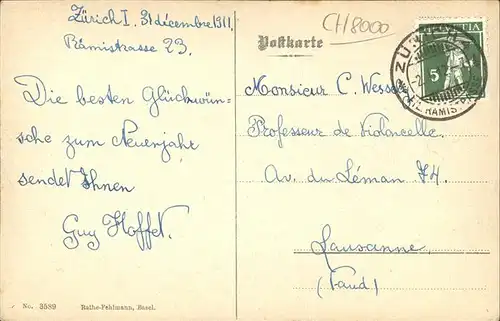 Zürich I. 31 décembre 1911.
Rämistrasse 23.
Die besten Glückwün-
sche zum Neuenjahr
sendet Ihnen
Guy Hoffet.
No. 3589
Rathe-Fehlmann, Basel.
CH8000
Postkarte
HELVETIA
5
Monsieur C. Wessel
Professeur de Violoncelle.
Av. du Léman 74.
Lausanne.
(Vaud)